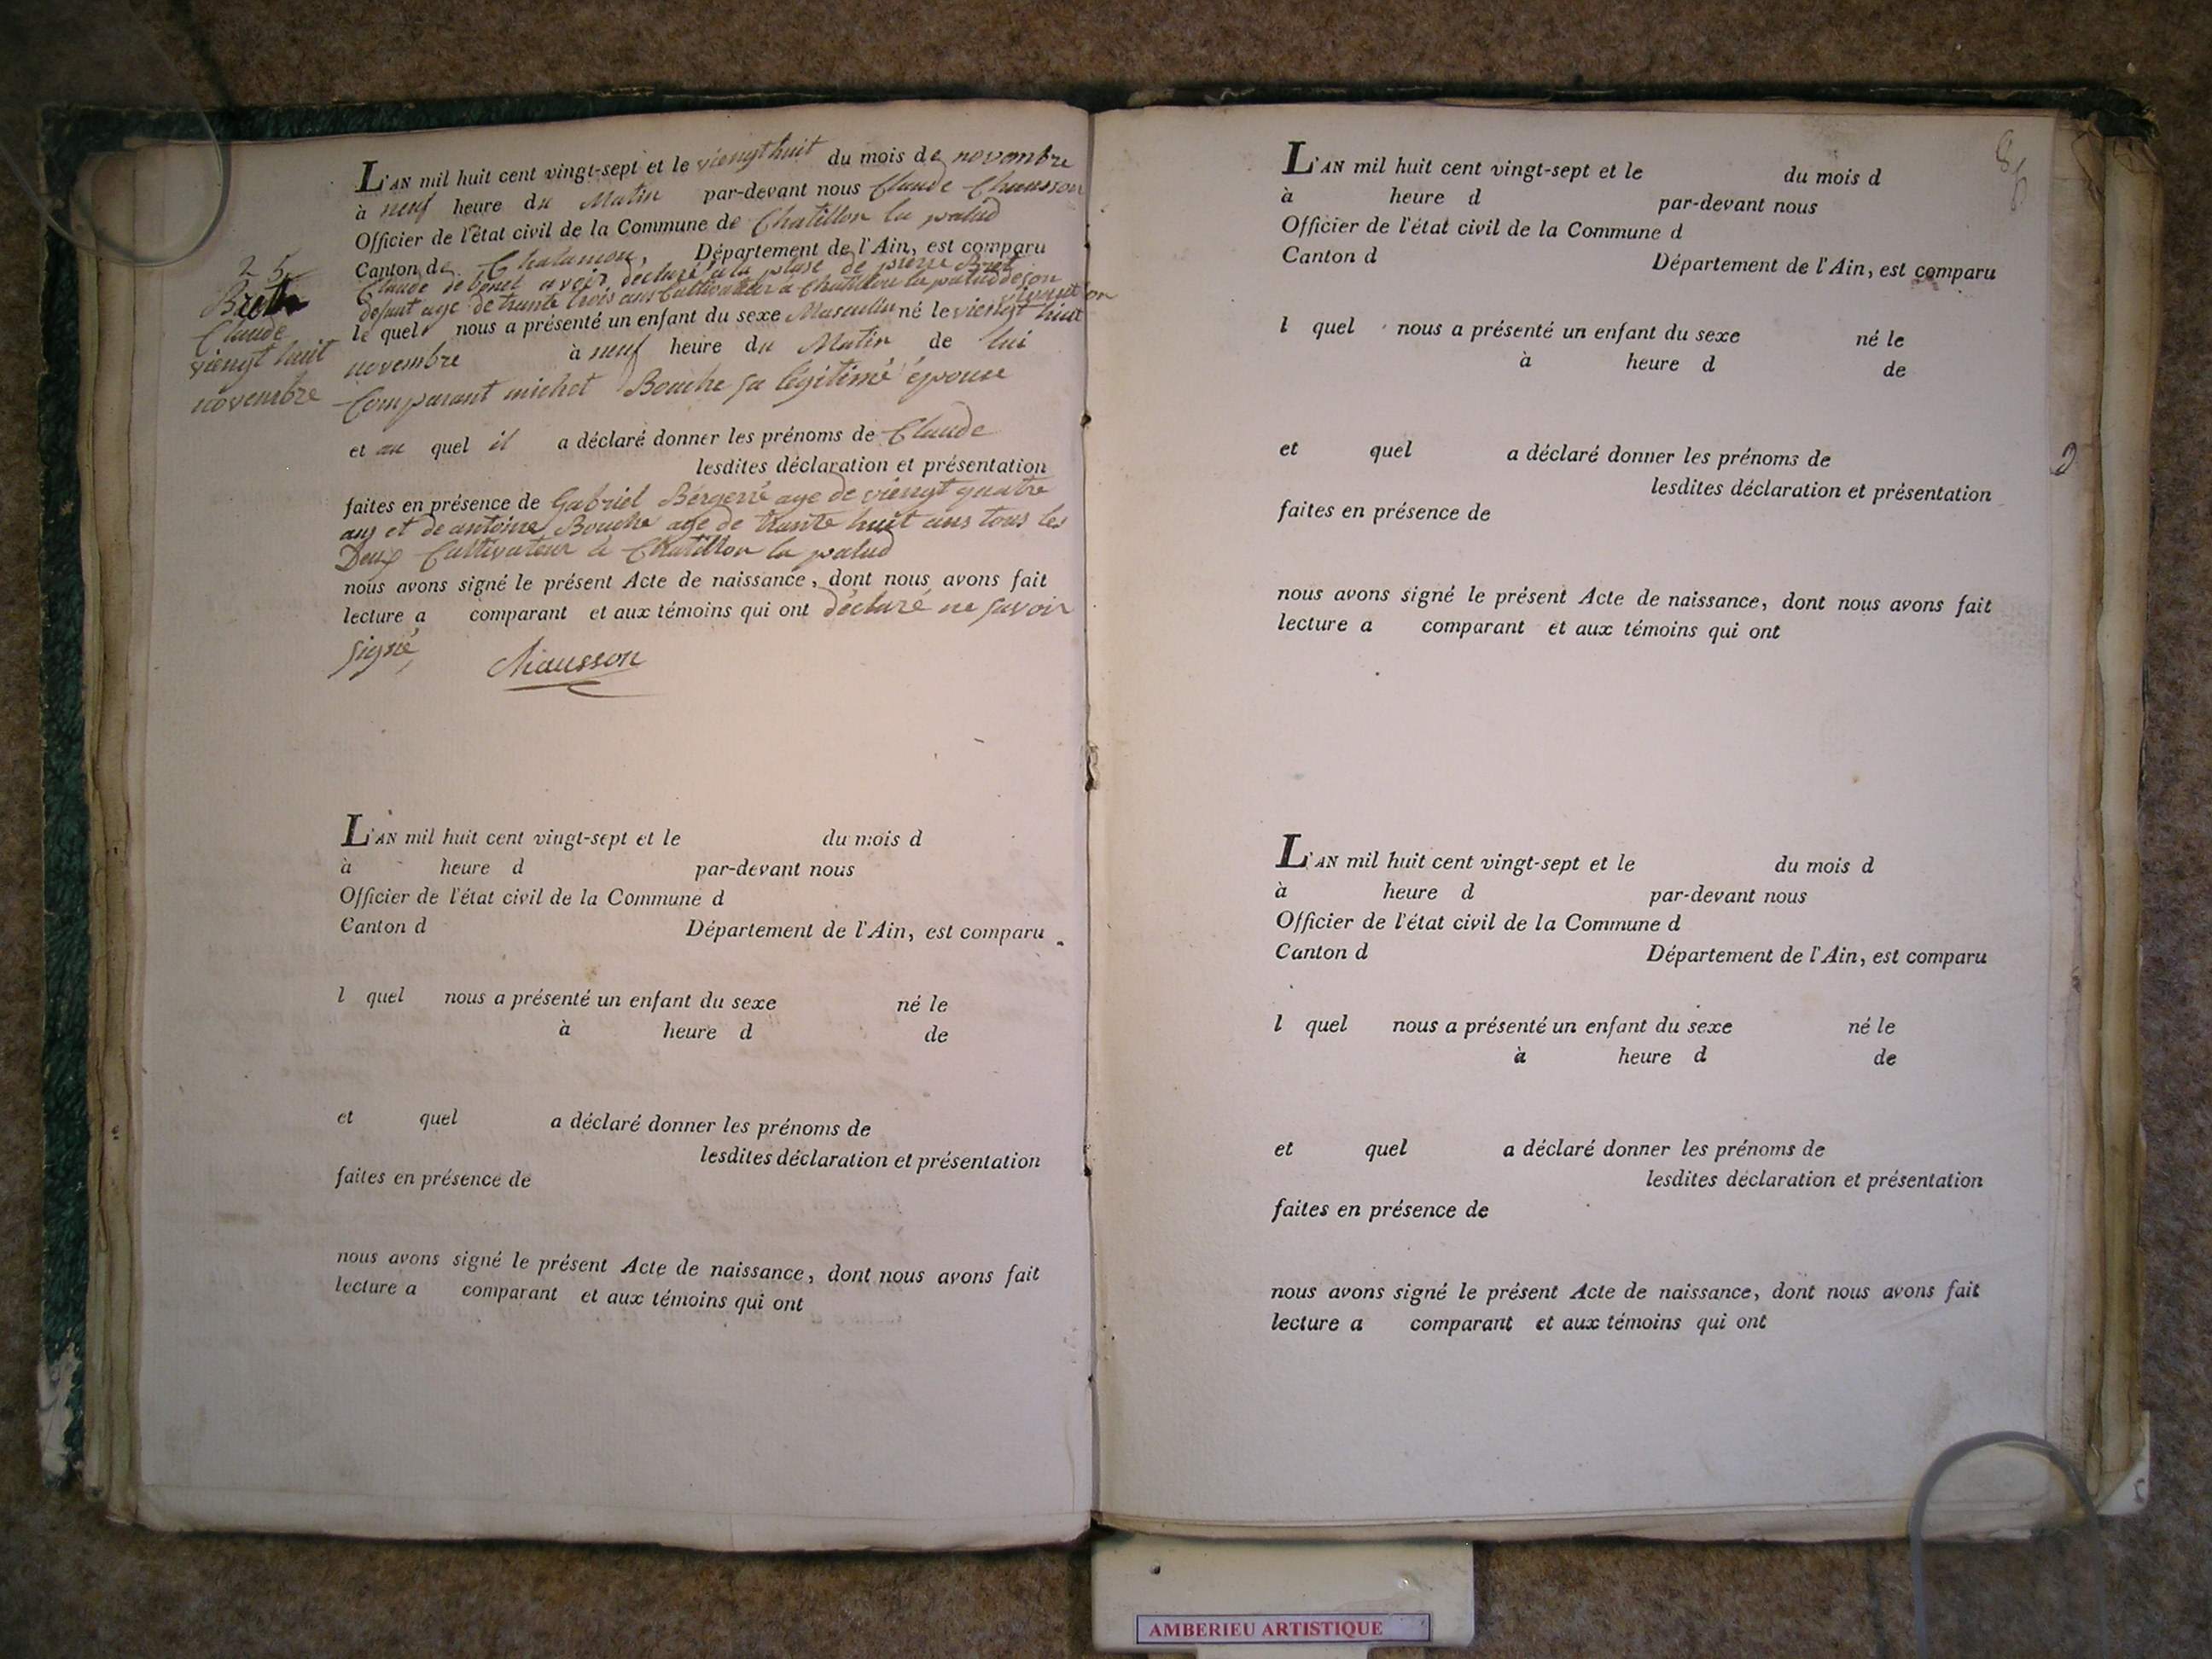 L'AN mil huit cent vingt-sept et le viengt huit du mois de novembre
à neuf heure du Matin par-devant nous Claude Chausson
Officier de l'état civil de la Commune de Chatillon la palud
Canton de Chalamon, Département de l'Ain, est comparu
Claude de bonet avoir déclaré a la plase de pierre Bret
defunt age de trante trois ans Cultivateur a Chatillon la palud de son
vivant
le quel nous a présenté un enfant du sexe Masculin né le viengt huit
novembre à neuf heure du Matin de lui
Comparant michet Bouche sa légitimé épouse
et au quel il a déclaré donner les prénoms de Claude
lesdites déclaration et présentation
faites en présence de Gabriel Bergerré age de viengt quatre
ans et de antoine Bouche age de trante huit ans tous les
Deux Cultivateur à Chatillon la palud
nous avons signé le présent Acte de naissance, dont nous avons fait
lecture a comparant et aux témoins qui ont déclaré ne savoir
signé,
Chausson
25
Bret
Claude
viengt huit
novembre
L'AN mil huit cent vingt-sept et le du mois d
à heure d par-devant nous
Officier de l'état civil de la Commune d
Canton d Département de l'Ain, est comparu
l quel nous a présenté un enfant du sexe né le
à heure d de
et quel a déclaré donner les prénoms de
lesdites déclaration et présentation
faites en présence de
nous avons signé le présent Acte de naissance, dont nous avons fait
lecture a comparant et aux témoins qui ont
L'AN mil huit cent vingt-sept et le du mois d
à heure d par-devant nous
Officier de l'état civil de la Commune d
Canton d Département de l'Ain, est comparu
l quel nous a présenté un enfant du sexe né le
à heure d de
et quel a déclaré donner les prénoms de
lesdites déclaration et présentation
faites en présence de
nous avons signé le présent Acte de naissance, dont nous avons fait
lecture a comparant et aux témoins qui ont
L'AN mil huit cent vingt-sept et le du mois d
à heure d par-devant nous
Officier de l'état civil de la Commune d
Canton d Département de l'Ain, est comparu
l quel nous a présenté un enfant du sexe né le
à heure d de
et quel a déclaré donner les prénoms de
lesdites déclaration et présentation
faites en présence de
nous avons signé le présent Acte de naissance, dont nous avons fait
lecture a comparant et aux témoins qui ont
AMBERIEU ARTISTIQUE